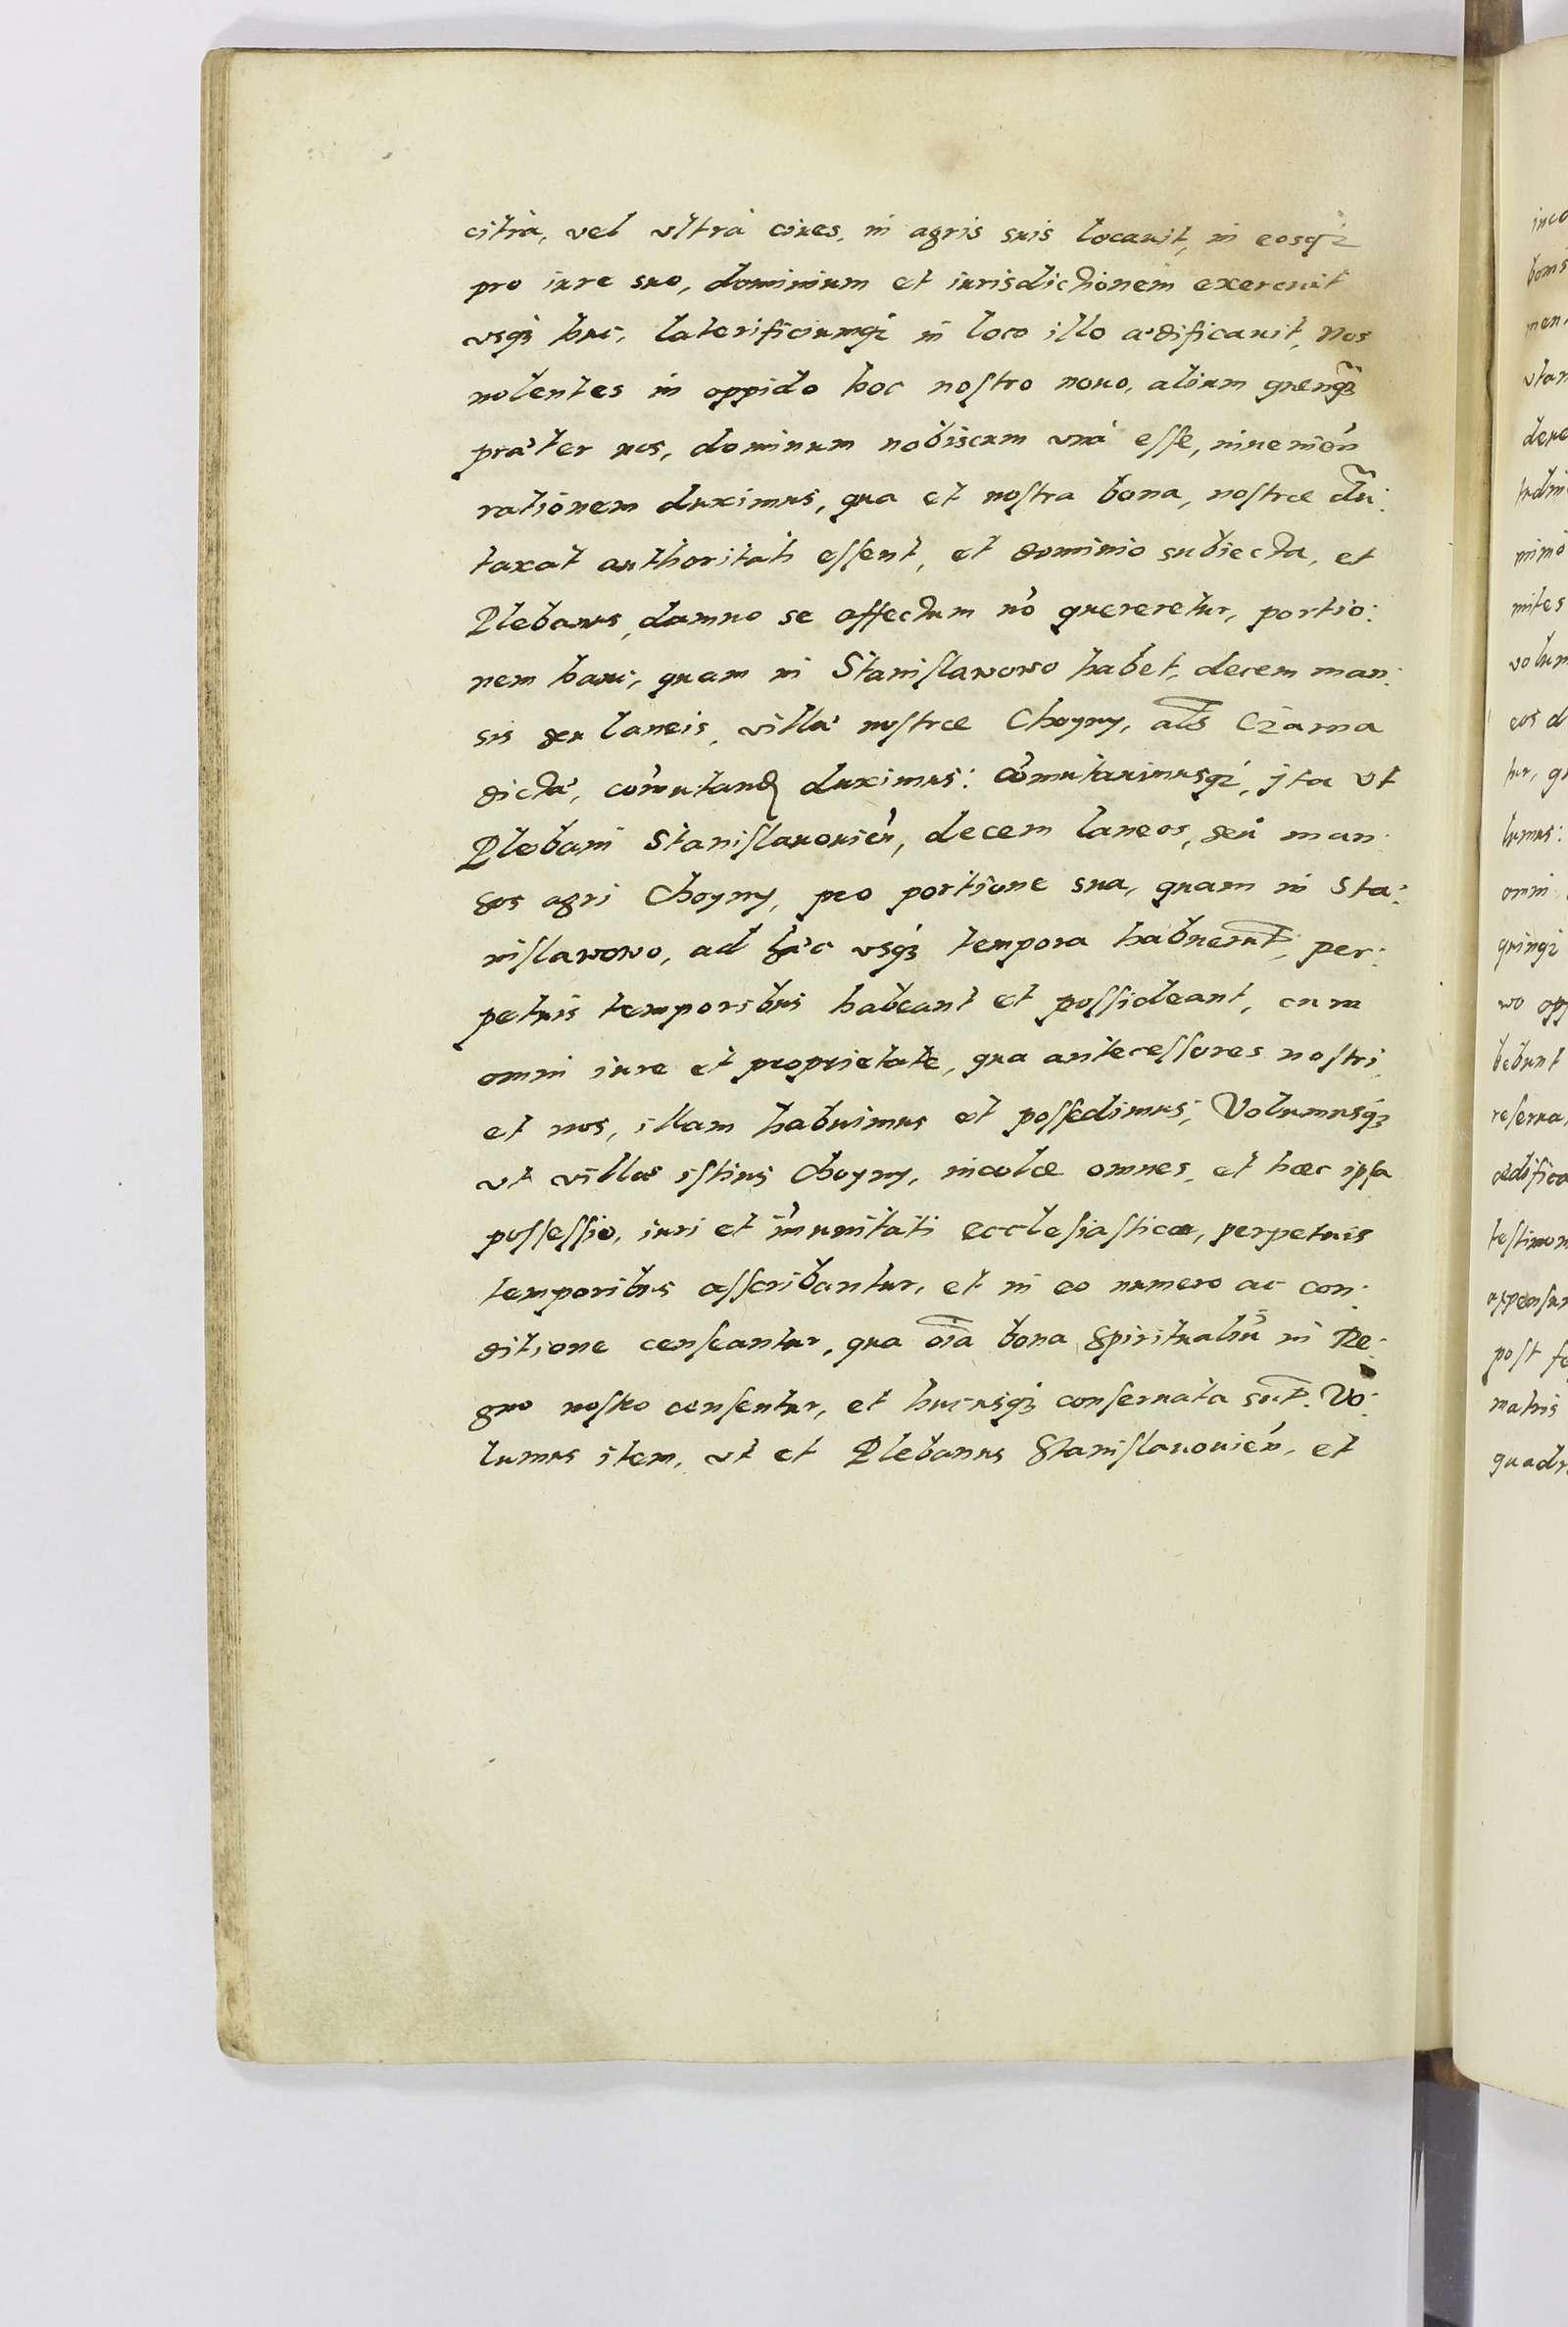 citrà, vel vltrà ciues, in agris suis locauit, in eosq́;
pro iure suo, dominium et iurisdictionem exercuit
vsq; huc, laterificiumq́; in loco illo ædificauit, Nos
nolentes in oppido hoc nostro nouo, alium quenq̃;
præter nos, dominum nobiscum vnà eſſe, inueniēn
rationem duximus, qua et noſtra bona, noſtræ dũ:
taxat authoritati eſſent, et dominio subiecta, et
Plebanus, damno se affectum nō quereretur, portio:
nem hanc, quam in Staniſlawowo habet, decem man:
sis seu laneis, villæ noſtræ Choyny, als̄ Czarna
dictæ, com̄utand duximus: Com̄utauimusq́;, jta vt
Plebani Staniſlauouień, decem laneos, seu man:
sos agri Choyny, pro portione sua, quam in Sta:
niſlawowo, ad hæc vsq; tempora habuerūt, per:
petuis temporibus habeant et poſſideant, cum
omni iure et proprietate, qua anteceſſores noſtri,
et nos, illam habuimus et poſſedimus; Volumusq́;
vt villæ iſtius Choyny, incolæ omnes, et hæc ipſa
poſſeſſio, iuri et im̄unitati eccleſiaſticæ, perpetuis
temporibus aſſcribantur, et in eo numero ac con:
ditione cenſeantur, qua oīa bona Spiritualiū in Re:
gno noſtro cenſentur, et hucusq; conſeruata sūt. Vo:
lumus item, vt et Plebanus Staniſlauouień, et
inco
bonis
men,
vtan
deue
tudin
minò
mites
volun
eos d
tur, qu
lumus:
omni
quinq́;
wo opp
bebunt
reſerua
ædifica
teſtimon
appenſu
poſt fe
matris
quadr